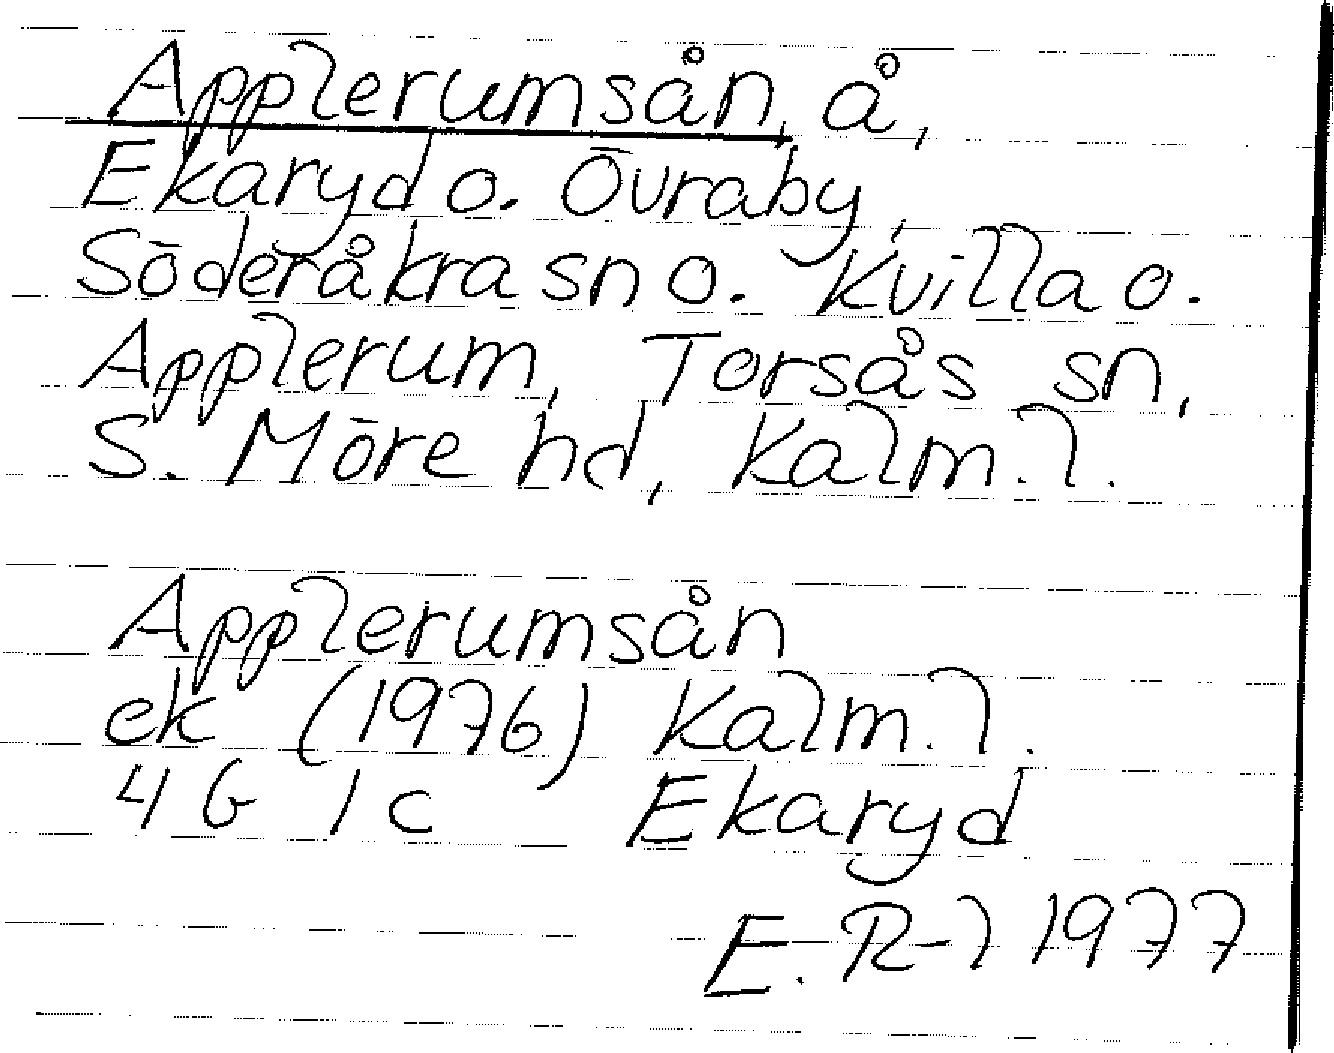 Applerumsån, å,
Ekaryd o. Övraby,
Söderåkra sn o. Kvilla o.
Applerum, Torsås sn,
S. Möre hd, Kalm. l.
Applerumsån
ek (1976) Kalm. l.
4 G 1 c Ekaryd
E. R-l 1977